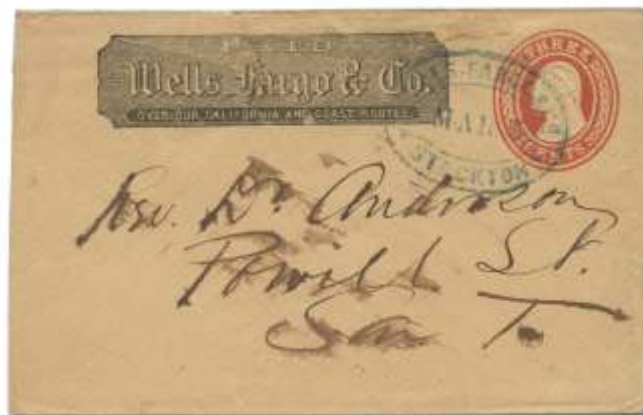 PAID
Wells Fargo & Co.
OVER OUR CALIFORNIA AND COAST ROUTES.
THREE
MAR
STOCKTON
Rev. Dr. Anderson
Powell St.
San F.